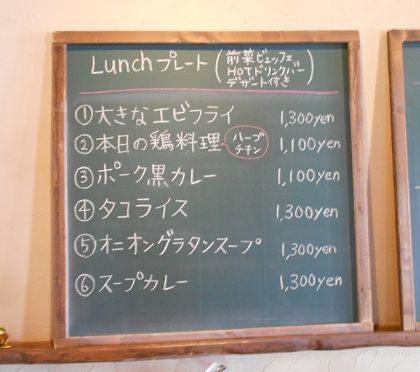 Lunchプレート(前菜ビュッフェ
HOTドリンクバー
デザート付き)
①大きなエビフライ 1,300yen
②本日の鶏料理 ハーブチキン 1,100yen
③ポーク黒カレー 1,100yen
④タコライス 1,300yen
⑤オニオングラタンスープ 1,300yen
⑥スープカレー 1,300yen